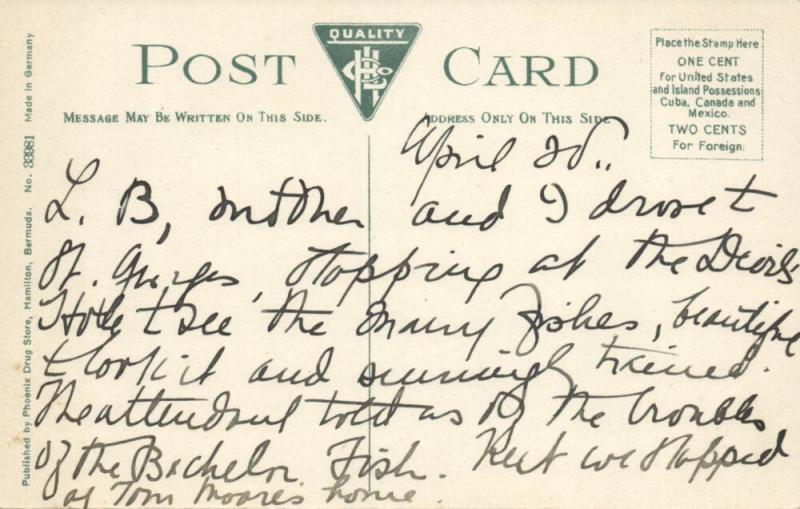 QUALITY
POST CARD
MESSAGE MAY BE WRITTEN ON THIS SIDE.
ADDRESS ONLY ON THIS SIDE
Place the Stamp Here
ONE CENT
For United States
and Island Possessions
Cuba, Canada and
Mexico.
TWO CENTS
For Foreign.
Published by Phoenix Drug Store, Hamilton, Bermuda. No. 33981 Made in Germany
April 20..
L. B, mother and I drove t
St. Georges, stopping at the Devils
Hole t see the many fishes, beautiful
t look at and seemingly trained.
The attendant told us of the troubles
of the Bachelor Fish. Next we stopped
at Tom Moore's home.